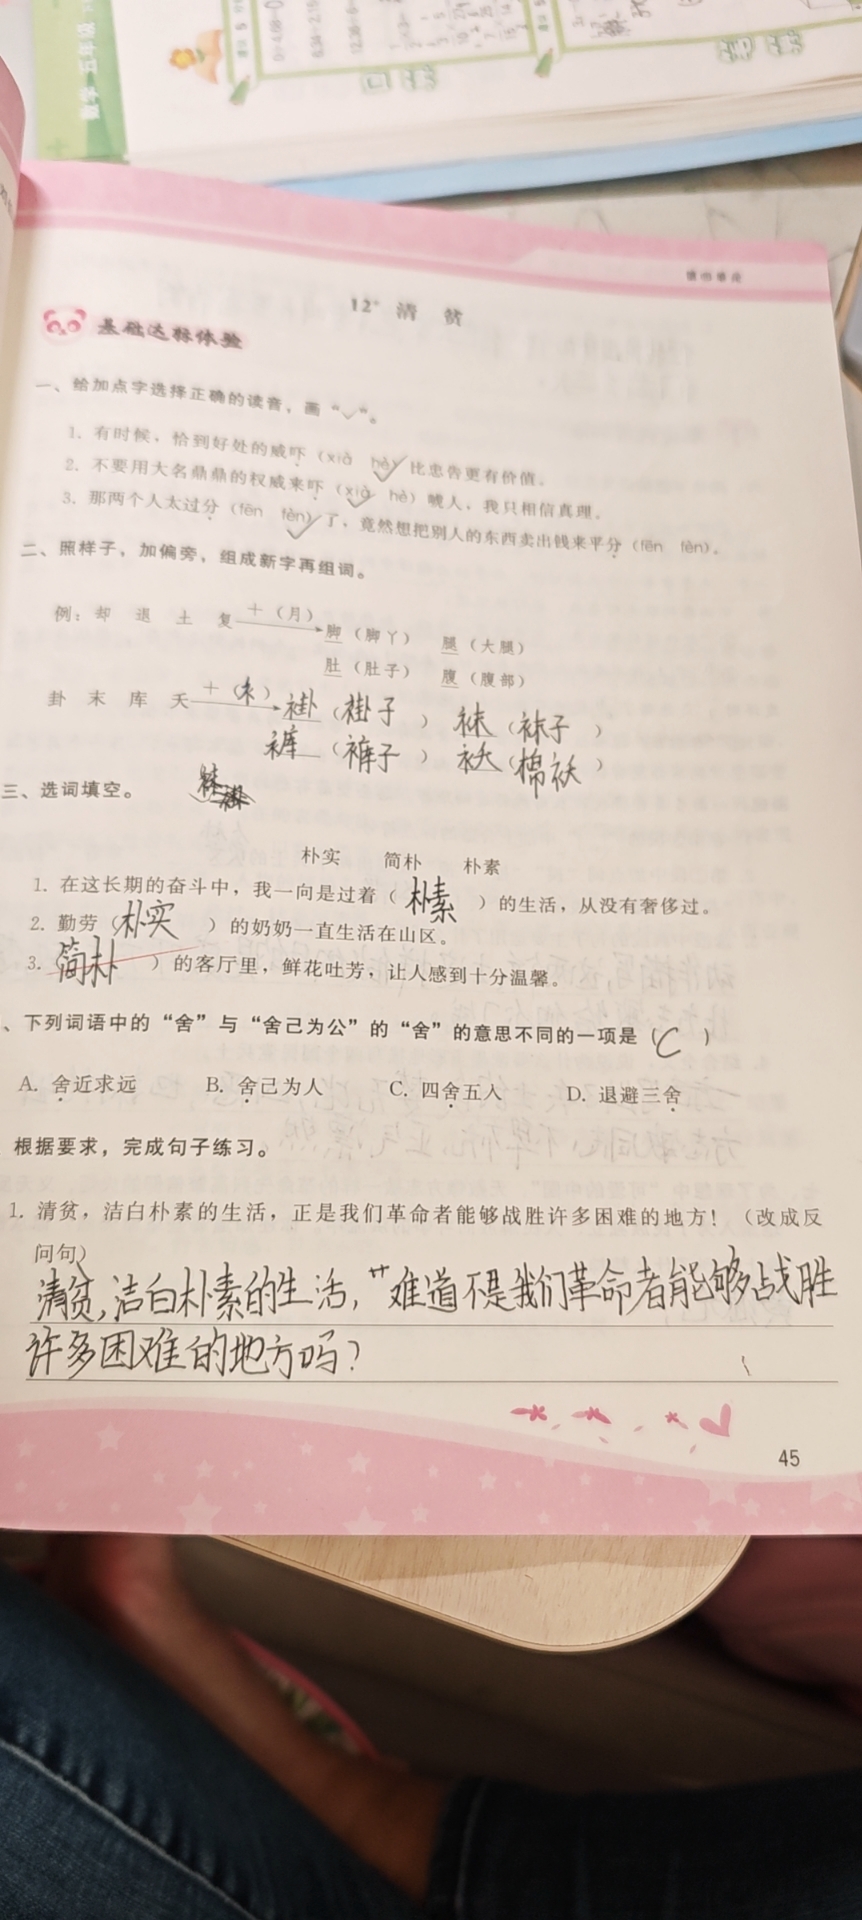 第四单元
12* 清 贫
基础达标体验
一、给加点字选择正确的读音，画“✓”。
1. 有时候，恰到好处的威吓（xià hè✓）比忠告更有价值。
2. 不要用大名鼎鼎的权威来吓（xià✓ hè）唬人，我只相信真理。
3. 那两个人太过分（fēn fèn✓）了，竟然想把别人的东西卖出钱来平分（fēn fèn）。
二、照样子，加偏旁，组成新字再组词。
例：却 退 土 复 ＋（月） 脚（脚丫） 腿（大腿）
肚（肚子） 腹（腹部）
卦 末 库 夭 ＋（衤） 褂（褂子） 袜（袜子）
裤（裤子） 袄（棉袄）
三、选词填空。
朴实 简朴 朴素
1. 在这长期的奋斗中，我一向是过着（朴素）的生活，从没有奢侈过。
2. 勤劳（朴实）的奶奶一直生活在山区。
3. 简朴）的客厅里，鲜花吐芳，让人感到十分温馨。
、下列词语中的“舍”与“舍己为公”的“舍”的意思不同的一项是（C）
A. 舍近求远 B. 舍己为人 C. 四舍五入 D. 退避三舍
根据要求，完成句子练习。
1. 清贫，洁白朴素的生活，正是我们革命者能够战胜许多困难的地方！（改成反
问句）
清贫，洁白朴素的生活，难道不是我们革命者能够战胜
许多困难的地方吗？
45